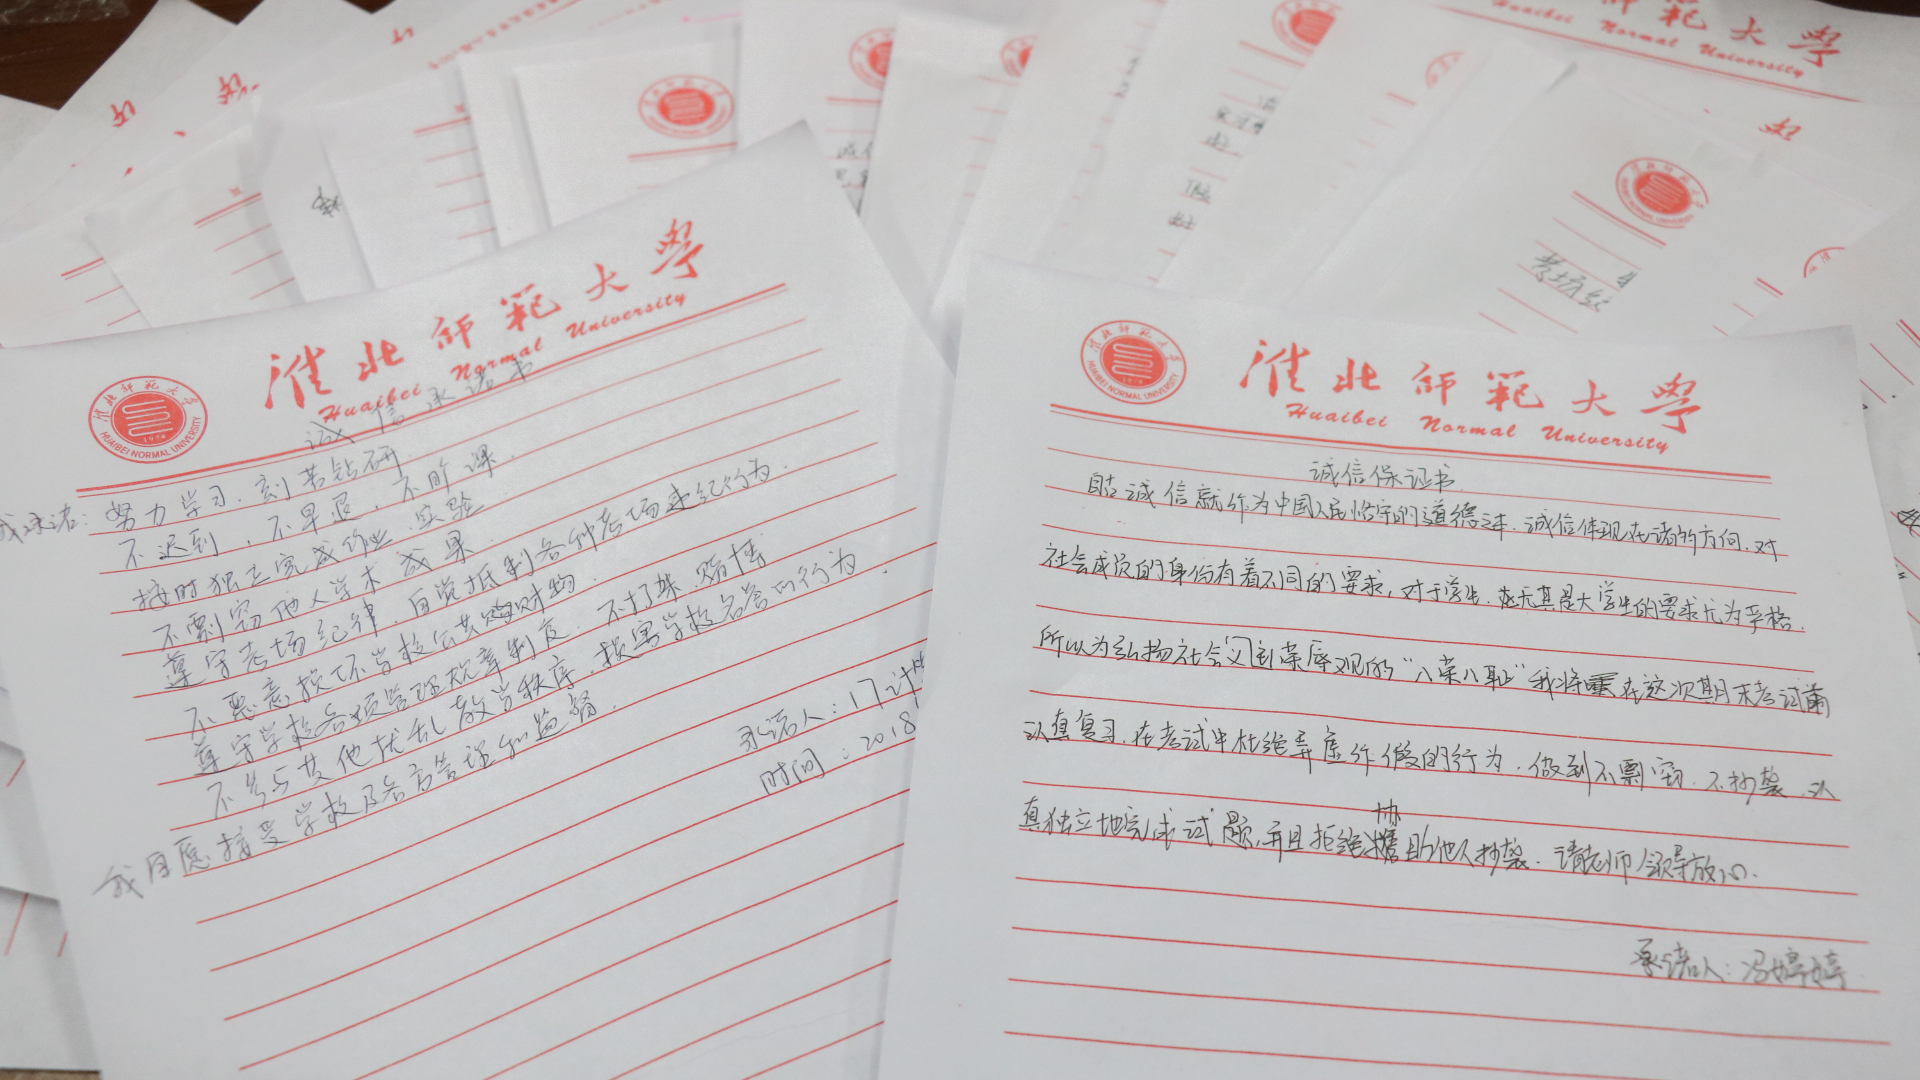 淮北师范大学
Huaibei Normal University
淮北师范大学
HUAIBEI NORMAL UNIVERSITY
1974
诚信承诺书
我承诺：努力学习．刻苦钻研．
不迟到．不早退．不旷课．
按时独立完成作业．实验．
不剽窃他人学术成果．
遵守考场纪律．自觉抵制各种考场违纪行为．
不恶意损坏学校公共财物．
遵守学校各项管理规章制度．不打架．赌博
不参与其他扰乱教学秩序．损害学校名誉的行为．
我自愿接受学校及各方管理和监督．
承诺人：17计
时间：2018
淮北師範大學
Huaibei Normal University
淮北师范大学
HUAIBEI NORMAL UNIVERSITY
1974
诚信保证书
自古诚信就作为中国人民恪守的道德之本．诚信体现在诸多方向．对
社会成员的身份有着不同的要求，对于学生．尤其是大学生的要求尤为严格．
所以为弘扬社会义到荣辱观的“八荣八耻”我将在这次期末考试前
认真复习．在考试中杜绝弄虚作假的行为．做到不剽窃．不抄袭．认
真独立地完成试题，并且拒绝协助他人抄袭．请老师/领导放心．
承诺人：冯婷婷
淮北师范大学
Huaibei Normal University